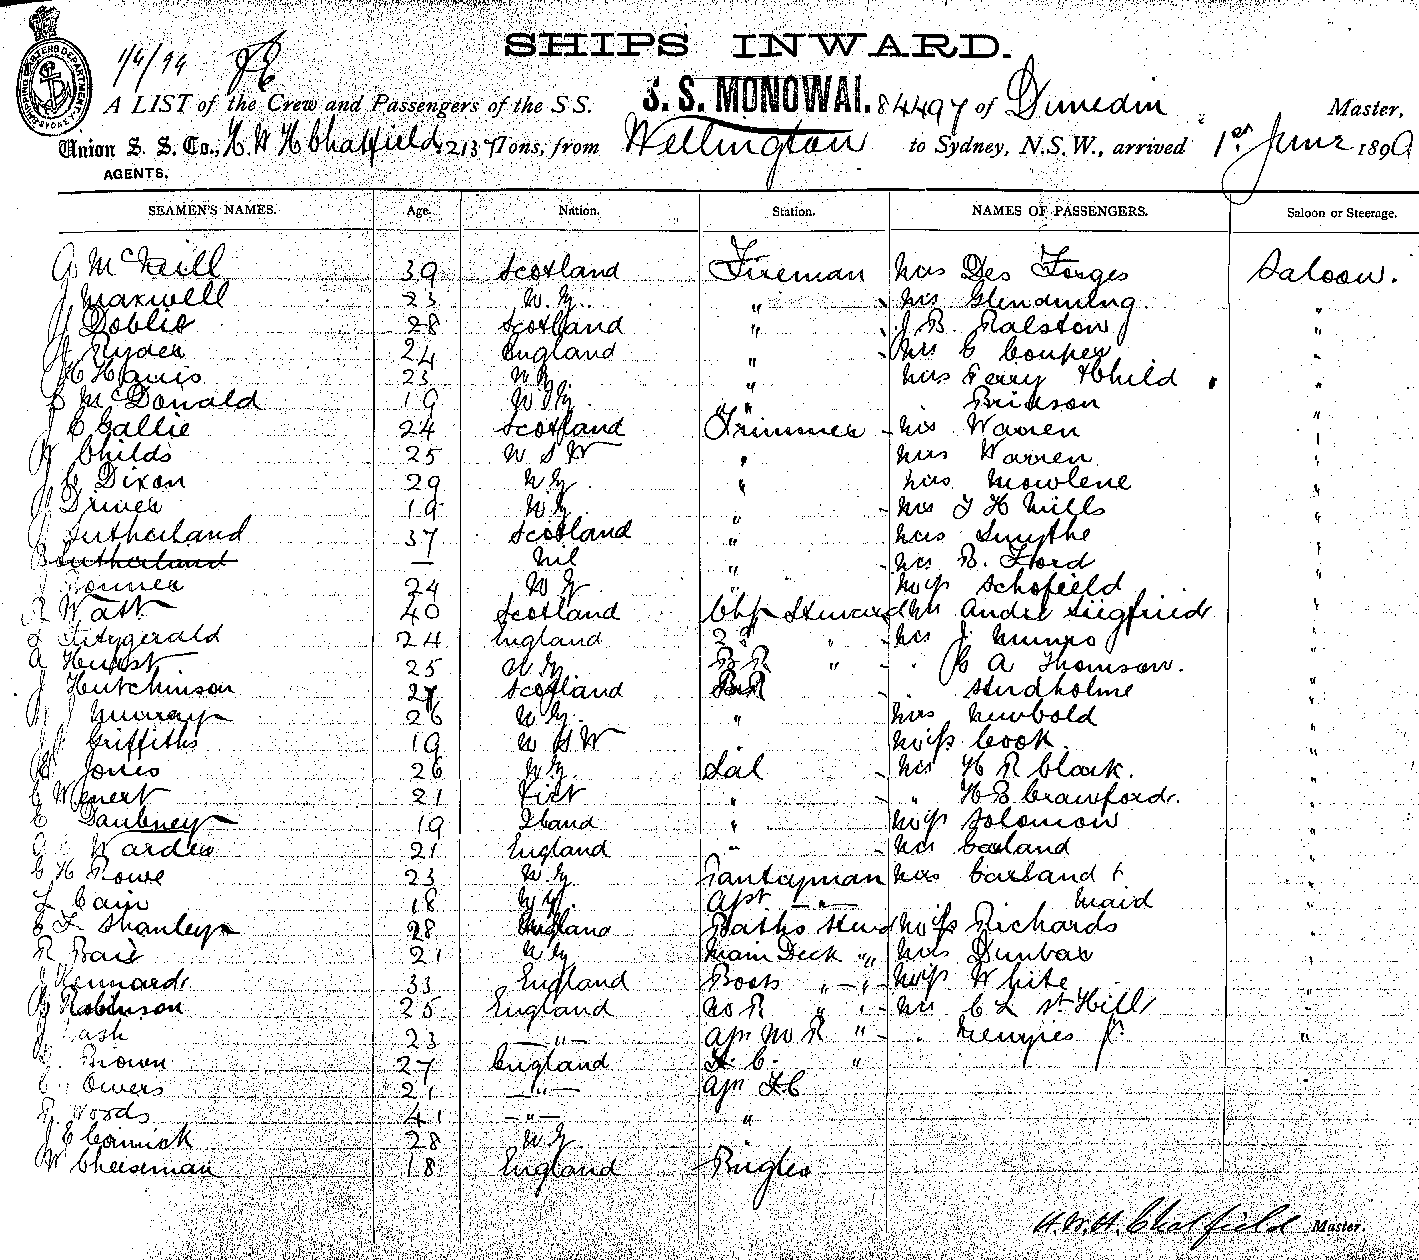 SHIPS INWARD.
1/6/99
A LIST of the Crew and Passengers of the S.S. S. S. MONOWAI. 84497 of Dunedin Master,
Union S. S. Co., H W H Chatfield, 2137 Tons, from Wellington to Sydney, N.S.W., arrived 1st June 1899
AGENTS.
SEAMEN'S NAMES. Age. Nation. Station. NAMES OF PASSENGERS. Saloon or Steerage.
A McNeill 39 Scotland Fireman Mrs Des Forges Saloon.
J Maxwell 23 N.Z. " Mr Glendining "
J Doblie 28 Scotland " J B. Ralston "
J Ryder 24 England " Mr C Couper "
H Harris 23 N.Z. " Mrs Perry & Child "
McDonald 19 N.Z. " Brinson "
J C Gallie 24 Scotland Trimmer Mr Warren "
W Childs 25 N S W " Mrs Warren "
J C Dixon 29 N.Z. " Mrs Mowlene "
J Driver 19 N.Z. " Mr J H Mills "
J Sutherland 37 Scotland " Mrs Smythe "
Sutherland — Nil " Mr B. Ford "
J Bonner 24 N Z " Miss Schofield "
R Watt 40 Scotland Chf Steward Mr Andre Siegfried "
Fitzgerald 24 England 2nd " Mr J Munro "
A Hurst 25 N.Z. B R " " C A Thomson. "
J Hutchinson 27 Scotland B R " Studholme "
Murray 26 N.Z. " Mrs Newbold "
Griffiths 19 N S W " Miss Cook. "
Jones 26 N.Z. Sal Mr H R Clark. "
C Wenert 21 Vict " " H E Crawford. "
C Daubney 19 Qland " Miss Solomon "
Warder 21 England " Mr Garland "
C H Rowe 23 N.Z. Pantryman Mrs Garland & "
L Cain 18 N.Z. Asst " Maid "
C L Shanley 28 England Baths Stewd Miss Richards "
R Bair 21 N Z Main Deck " Mrs Dunbar "
J Kennard 33 England Boots " Miss White "
Robinson 25 England No R " Mr C L St Hill "
J Cash 23 " " Menzies "
Brown 27 England F. C. "
Owers 21 "
R Woods 41 " "
J C Cormick 28 N.Z.
W Cheeseman 18 England Bugler
H.W.H. Chatfield Master.